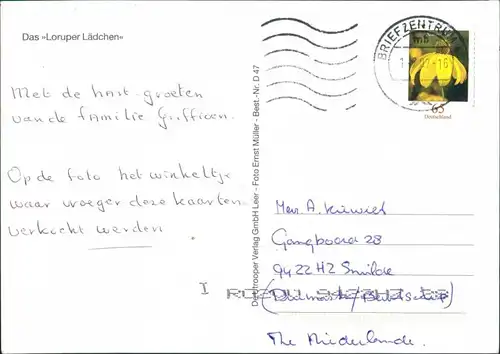 Das »Loruper Lädchen«
Met de hart. groeten
van de familie Griffioen.
Op de foto het winkeltje
waar vroeger deze kaarten
verkocht werden
Dorftrooper Verlag GmbH Leer - Foto Ernst Müller - Best.-Nr. D 47
BRIEFZENTRUM
65
Deutschland
Mevr. A.
Gangboord 28
9422 HZ Smilde
The Niederlande.